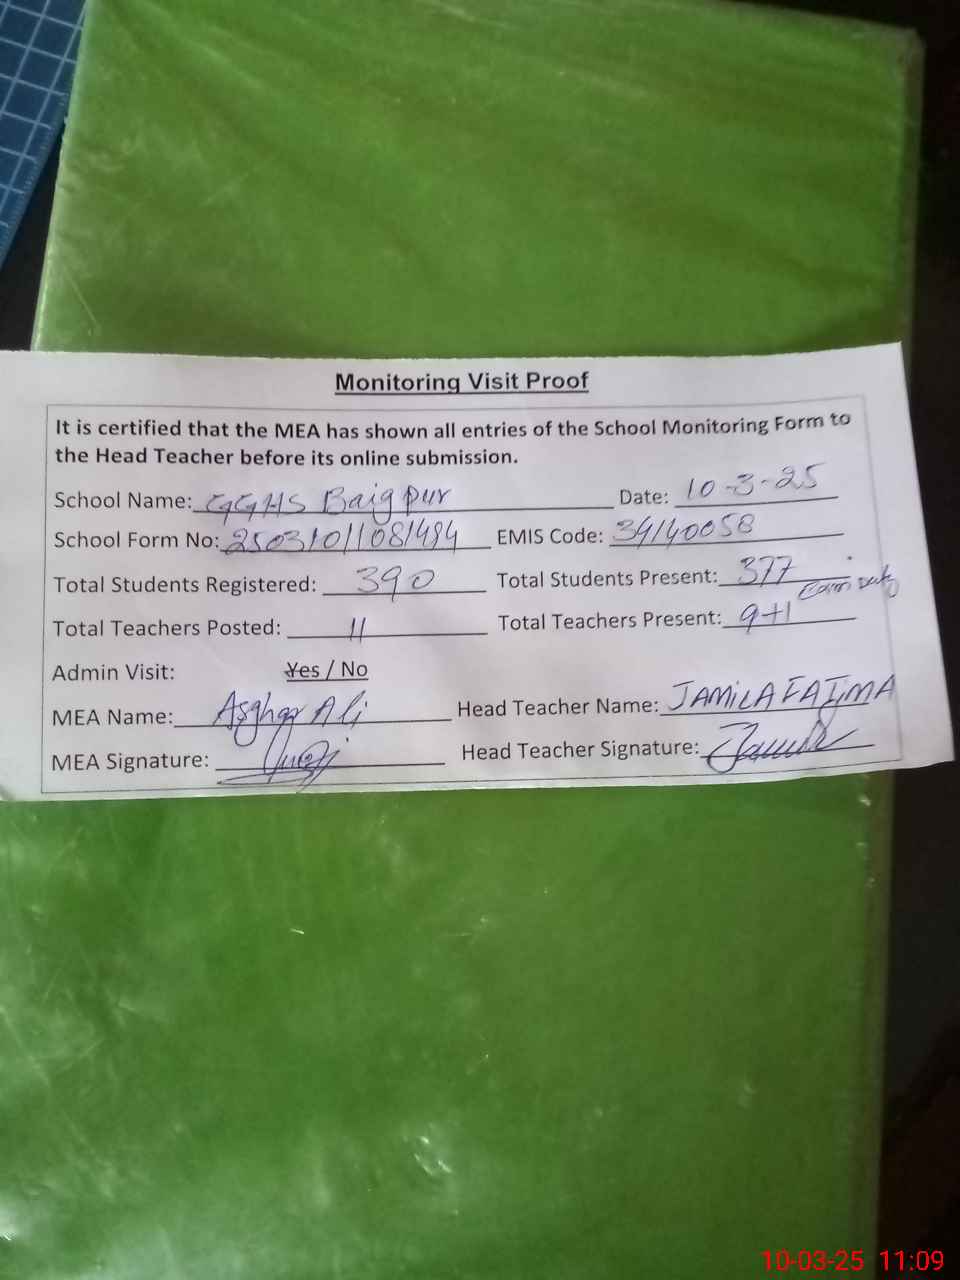 Monitoring Visit Proof
It is certified that the MEA has shown all entries of the School Monitoring Form to
the Head Teacher before its online submission.
School Name: GGHS Baigpur Date: 10-3-25
School Form No: EMIS Code: 34140058
Total Students Registered: 390 Total Students Present: 377
Total Teachers Posted: 11 Total Teachers Present: 9+1
Admin Visit: Yes / No
MEA Name: Asghar Ali Head Teacher Name: JAMILA FATIMA
MEA Signature: Head Teacher Signature:
10-03-25 11:09